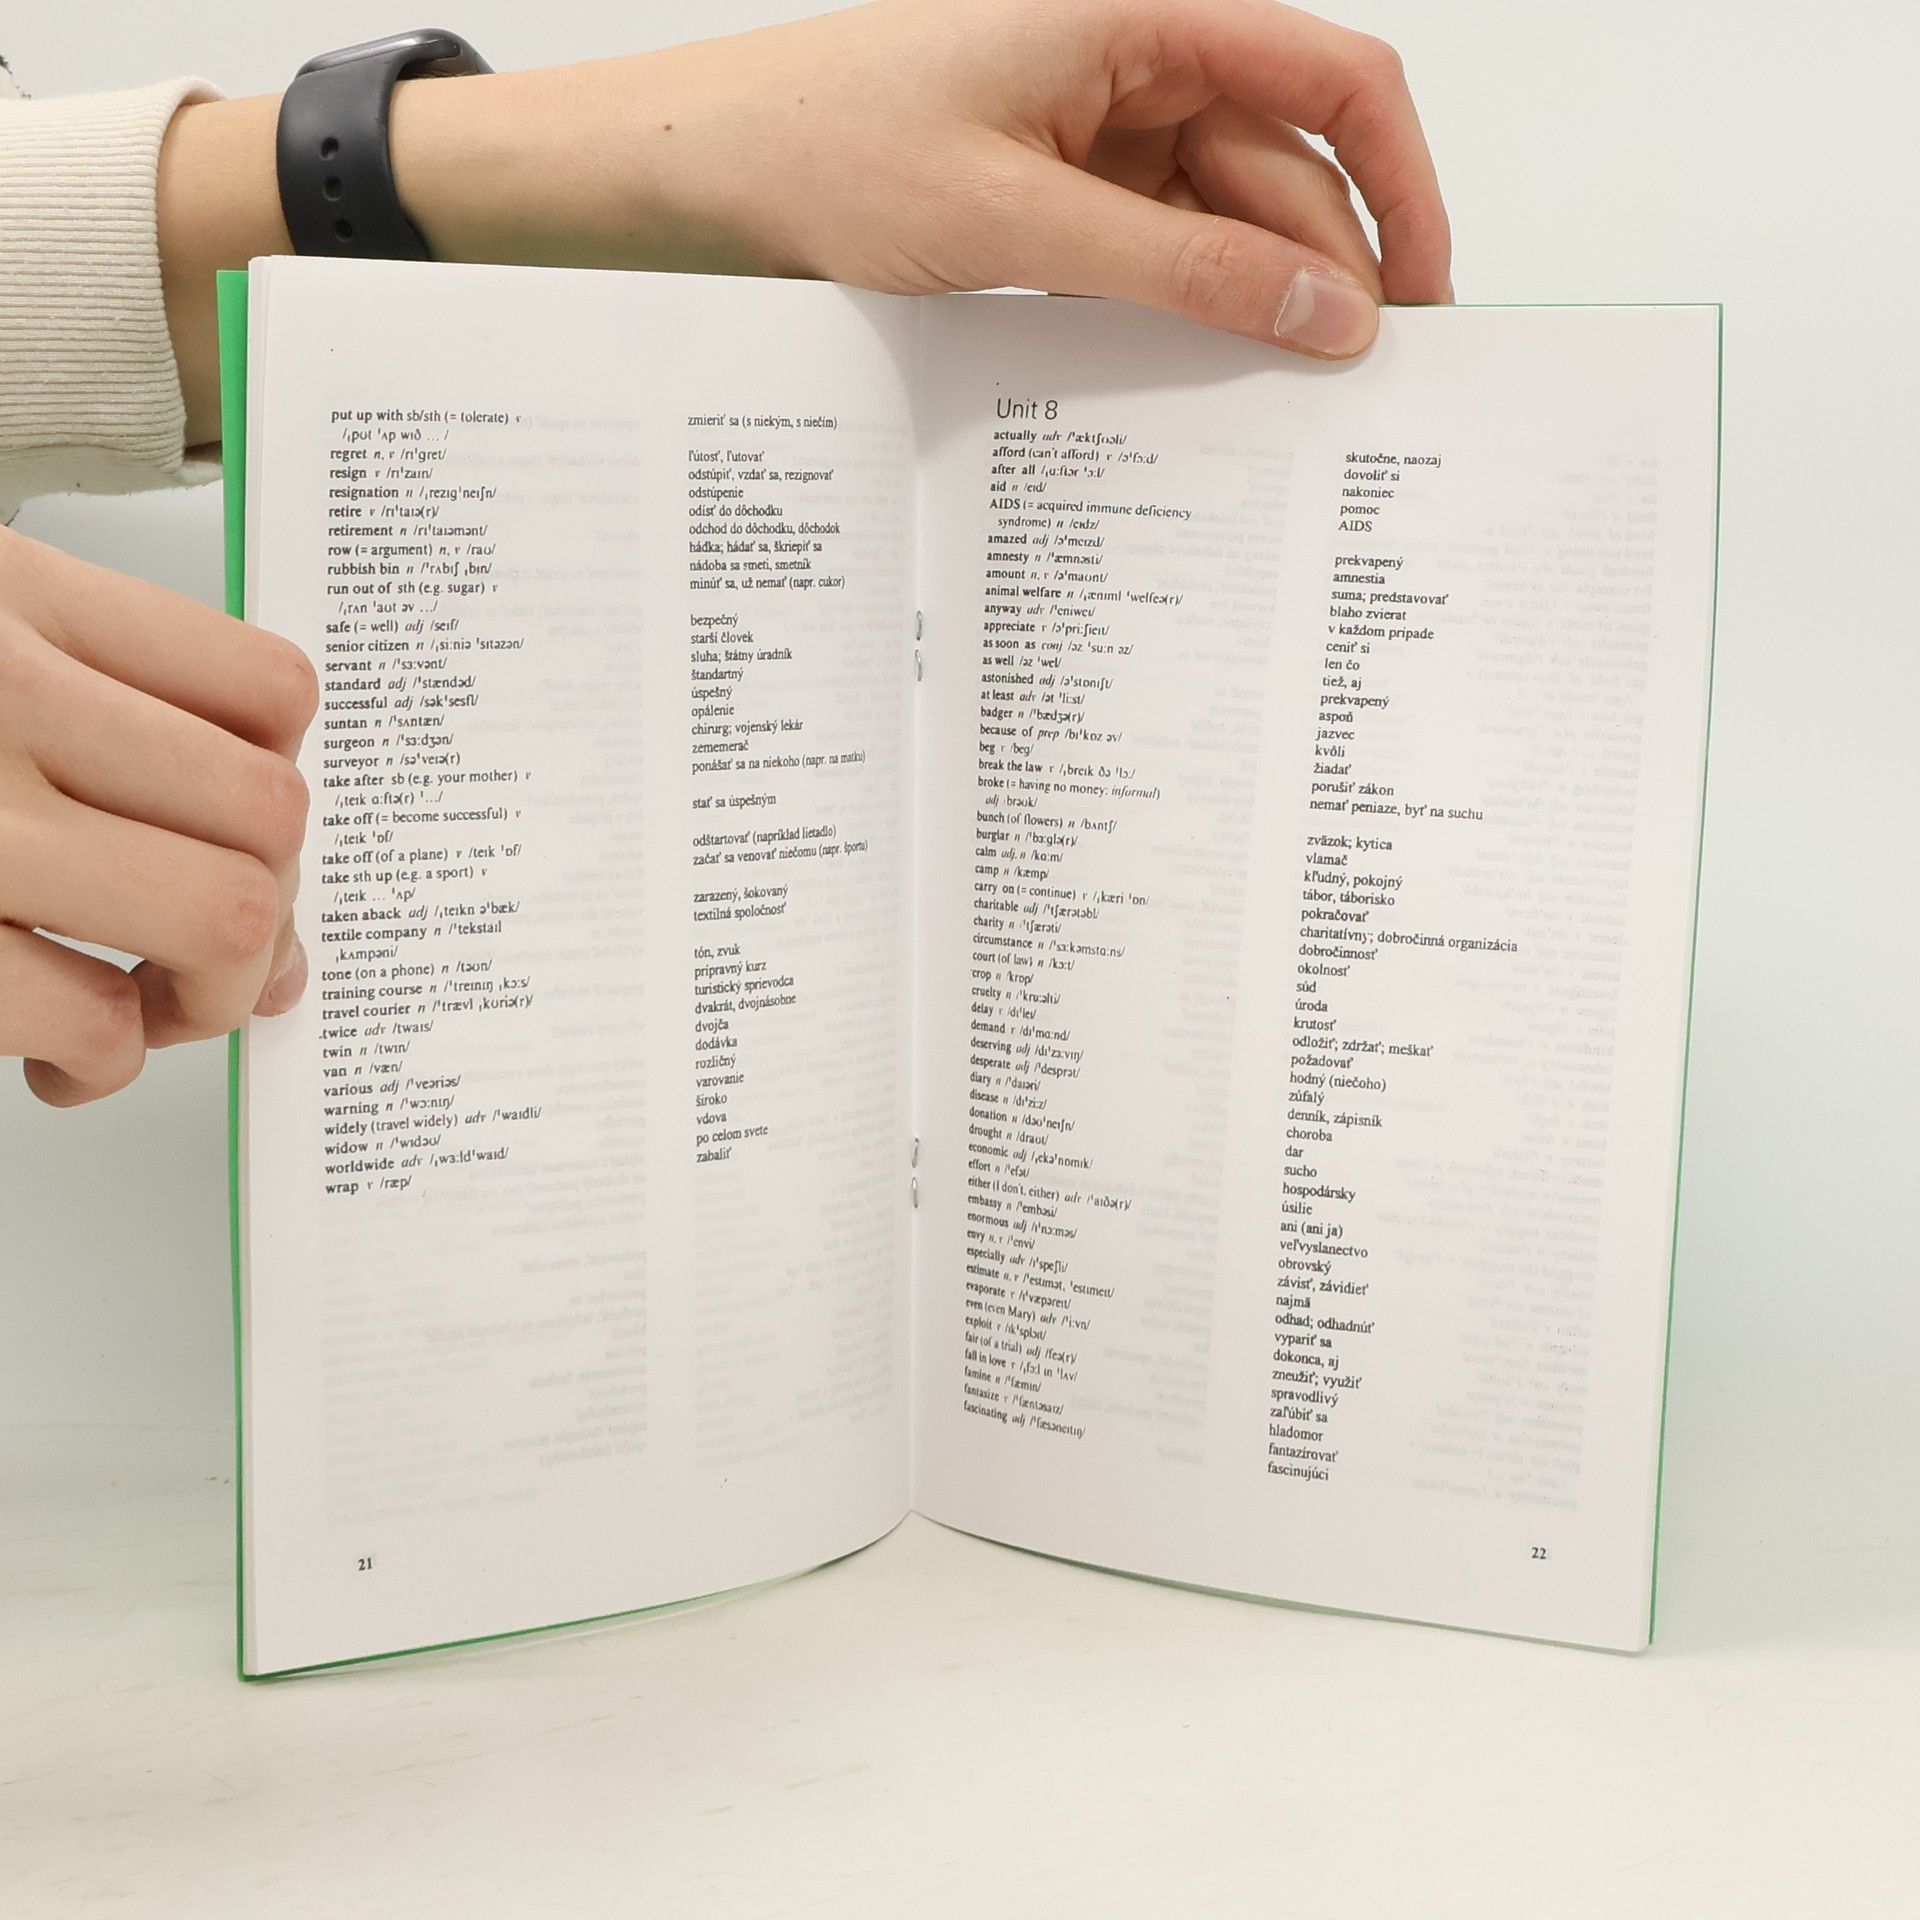 put up with sb/sth (= tolerate) v
/ˌpʊt ˈʌp wɪð ... /
regret n, v /rɪˈgret/
resign v /rɪˈzaɪn/
resignation n /ˌrezɪgˈneɪʃn/
retire v /rɪˈtaɪə(r)/
retirement n /rɪˈtaɪəmənt/
row (= argument) n, v /raʊ/
rubbish bin n /ˈrʌbɪʃ ˌbɪn/
run out of sth (e.g. sugar) v
/ˌrʌn ˈaʊt əv .../
safe (= well) adj /seɪf/
senior citizen n /ˌsiːniə ˈsɪtəzən/
servant n /ˈsɜːvənt/
standard adj /ˈstændəd/
successful adj /səkˈsesfl/
suntan n /ˈsʌntæn/
surgeon n /ˈsɜːdʒən/
surveyor n /səˈveɪə(r)
take after sb (e.g. your mother) v
/ˌteɪk ɑːftə(r) ˈ.../
take off (= become successful) v
/ˌteɪk ˈɒf/
take off (of a plane) v /teɪk ˈɒf/
take sth up (e.g. a sport) v
/ˌteɪk ... ˈʌp/
taken aback adj /ˌteɪkn əˈbæk/
textile company n /ˈtekstaɪl
ˌkʌmpəni/
tone (on a phone) n /təʊn/
training course n /ˈtreɪnɪŋ ˌkɔːs/
travel courier n /ˈtrævl ˌkʊriə(r)/
twice adv /twaɪs/
twin n /twɪn/
van n /væn/
various adj /ˈveəriəs/
warning n /ˈwɔːnɪŋ/
widely (travel widely) adv /ˈwaɪdli/
widow n /ˈwɪdəʊ/
worldwide adv /ˌwɜːldˈwaɪd/
wrap v /ræp/
zmieriť sa (s niekým, s niečím)
ľútosť, ľutovať
odstúpiť, vzdať sa, rezignovať
odstúpenie
odísť do dôchodku
odchod do dôchodku, dôchodok
hádka; hádať sa, škriepiť sa
nádoba sa smeti, smetník
minúť sa, už nemať (napr. cukor)
bezpečný
starší človek
sluha; štátny úradník
štandartný
úspešný
opálenie
chirurg; vojenský lekár
zememerač
ponášať sa na niekoho (napr. na matku)
stať sa úspešným
odštartovať (napríklad lietadlo)
začať sa venovať niečomu (napr. športu)
zarazený, šokovaný
textilná spoločnosť
tón, zvuk
prípravný kurz
turistický sprievodca
dvakrát, dvojnásobne
dvojča
dodávka
rozličný
varovanie
široko
vdova
po celom svete
zabaliť
21
Unit 8
actually adv /ˈæktʃʊəli/
afford (can't afford) v /əˈfɔːd/
after all /ˌɑːftər ˈɔːl/
aid n /eɪd/
AIDS (= acquired immune deficiency
syndrome) n /eɪdz/
amazed adj /əˈmeɪzd/
amnesty n /ˈæmnəsti/
amount n, v /əˈmaʊnt/
animal welfare n /ˌænɪml ˈwelfeə(r)/
anyway adv /ˈeniweɪ/
appreciate v /əˈpriːʃieɪt/
as soon as conj /əz ˈsuːn əz/
as well /əz ˈwel/
astonished adj /əˈstɒnɪʃt/
at least adv /ət ˈliːst/
badger n /ˈbædʒə(r)/
because of prep /bɪˈkɒz əv/
beg v /beg/
break the law v /ˌbreɪk ðə ˈlɔː/
broke (= having no money: informal)
adj /brəʊk/
bunch (of flowers) n /bʌntʃ/
burglar n /ˈbɜːglə(r)/
calm adj, n /kɑːm/
camp n /kæmp/
carry on (= continue) v /ˌkæri ˈɒn/
charitable adj /ˈtʃærətəbl/
charity n /ˈtʃærəti/
circumstance n /ˈsɜːkəmstɑːns/
court (of law) n /kɔːt/
crop n /krɒp/
cruelty n /ˈkruːəlti/
delay v /dɪˈleɪ/
demand v /dɪˈmɑːnd/
deserving adj /dɪˈzɜːvɪŋ/
desperate adj /ˈdesprət/
diary n /ˈdaɪəri/
disease n /dɪˈziːz/
donation n /dəʊˈneɪʃn/
drought n /draʊt/
economic adj /ˌekəˈnɒmɪk/
effort n /ˈefət/
either (I don't, either) adv /ˈaɪðə(r)/
embassy n /ˈembəsi/
enormous adj /ɪˈnɔːməs/
envy n, v /ˈenvi/
especially adv /ɪˈspeʃli/
estimate n, v /ˈestɪmət, ˈestɪmeɪt/
evaporate v /ɪˈvæpəreɪt/
even (even Mary) adv /ˈiːvn/
exploit v /ɪkˈsplɔɪt/
fair (of a trial) adj /feə(r)/
fall in love v /ˌfɔːl ɪn ˈlʌv/
famine n /ˈfæmɪn/
fantasize v /ˈfæntəsaɪz/
fascinating adj /ˈfæsəneɪtɪŋ/
skutočne, naozaj
dovoliť si
nakoniec
pomoc
AIDS
prekvapený
amnestia
suma; predstavovať
blaho zvierat
v každom prípade
ceniť si
len čo
tiež, aj
prekvapený
aspoň
jazvec
kvôli
žiadať
porušiť zákon
nemať peniaze, byť na suchu
zväzok; kytica
vlamač
kľudný, pokojný
tábor, táborisko
pokračovať
charitatívny; dobročinná organizácia
dobročinnosť
okolnosť
súd
úroda
krutosť
odložiť; zdržať; meškať
požadovať
hodný (niečoho)
zúfalý
denník, zápisník
choroba
dar
sucho
hospodársky
úsilie
ani (ani ja)
veľvyslanectvo
obrovský
závisť, závidieť
najmä
odhad; odhadnúť
vypariť sa
dokonca, aj
zneužiť; využiť
spravodlivý
zaľúbiť sa
hladomor
fantazírovať
fascinujúci
22